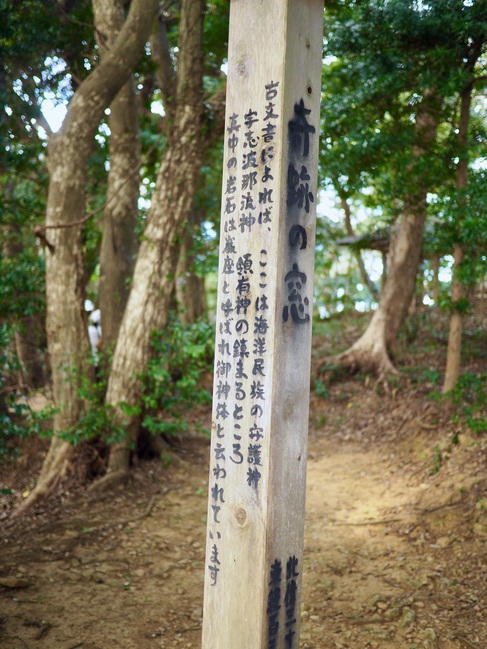 奇跡の窓
古文書によれば、ここは海洋民族の守護神
宇志波那流神 頭有神の鎮まるところ
真中の岩石は巌座と呼ばれ御神体と云われています